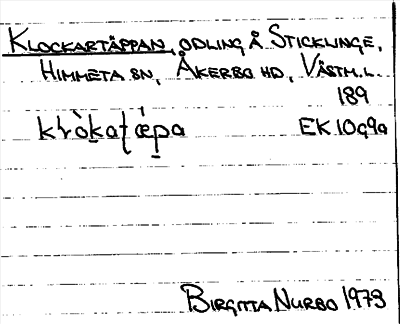 KLOCKARTÄPPAN, ODLING Å STICKLINGE,
HIMMETA SN, ÅKERBO HD, VÄSTM. L.
189
EK 10g9a
BIRGITTA NURBO 1973